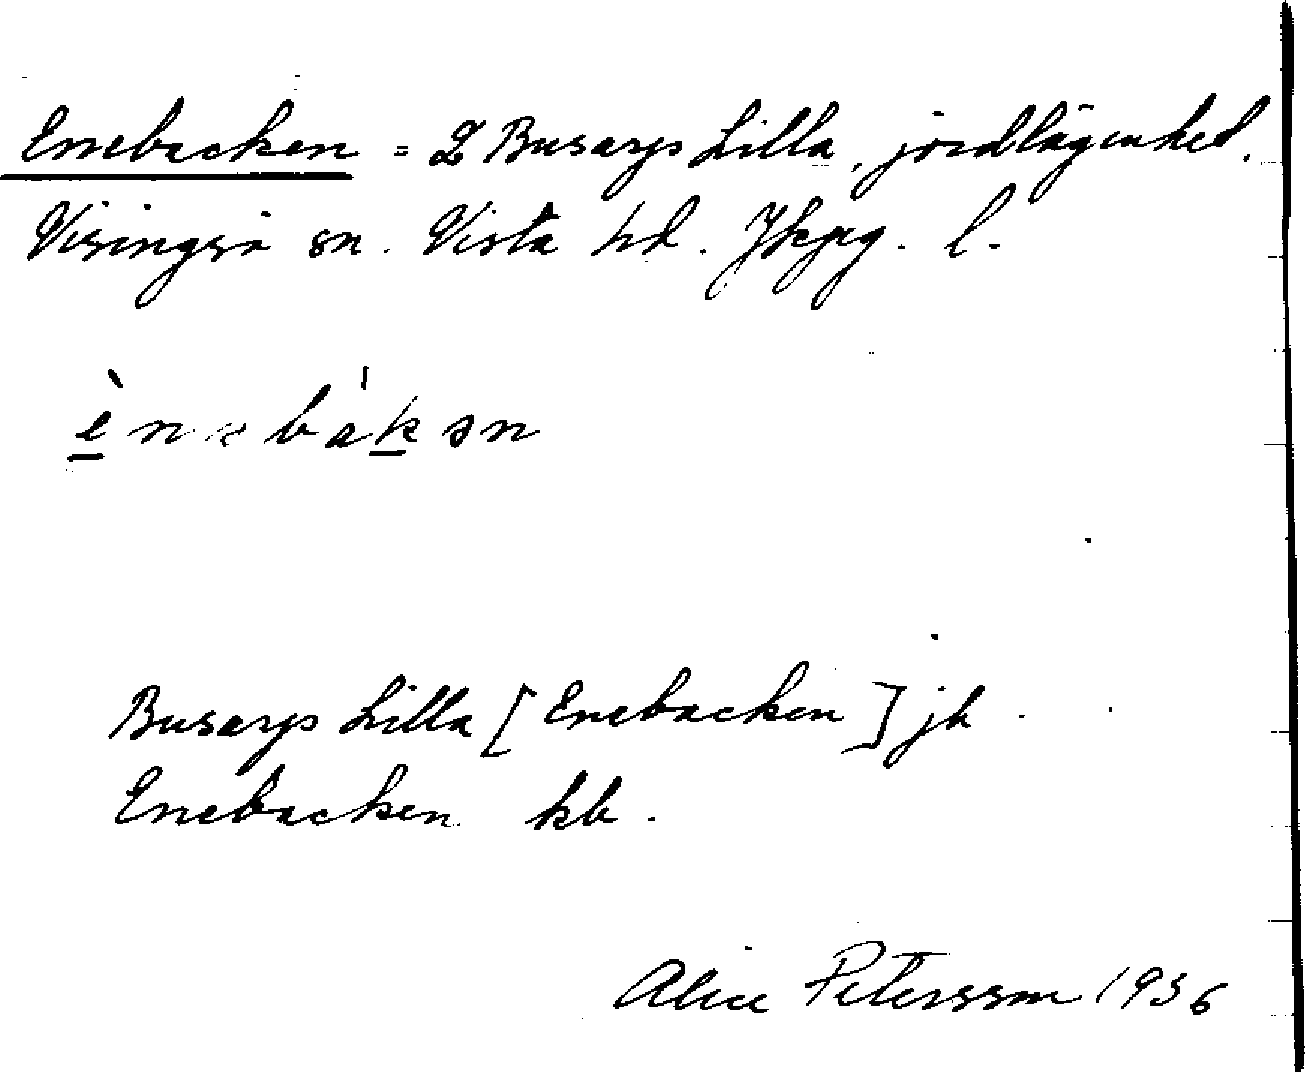 Enebacken = 2 Busarps Lilla, jordlägenhet.
Visingsö sn. Vista hd. Jkpg. l.
Busarps Lilla [Enebacken] jb
Enebacken kb.
Alice Petersson 1936